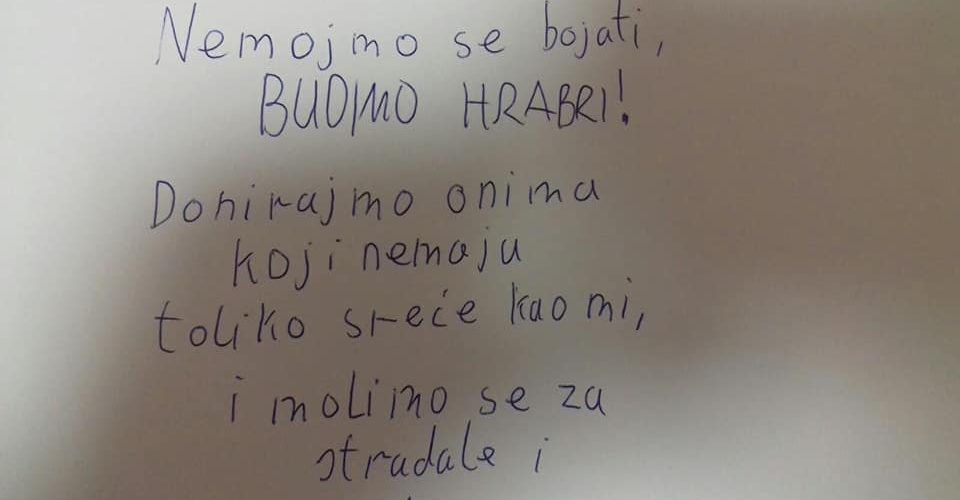 Nemojmo se bojati,
BUDIMO HRABRI!
Donirajmo onima
koji nemaju
toliko sreće kao mi,
i molimo se za
stradale i